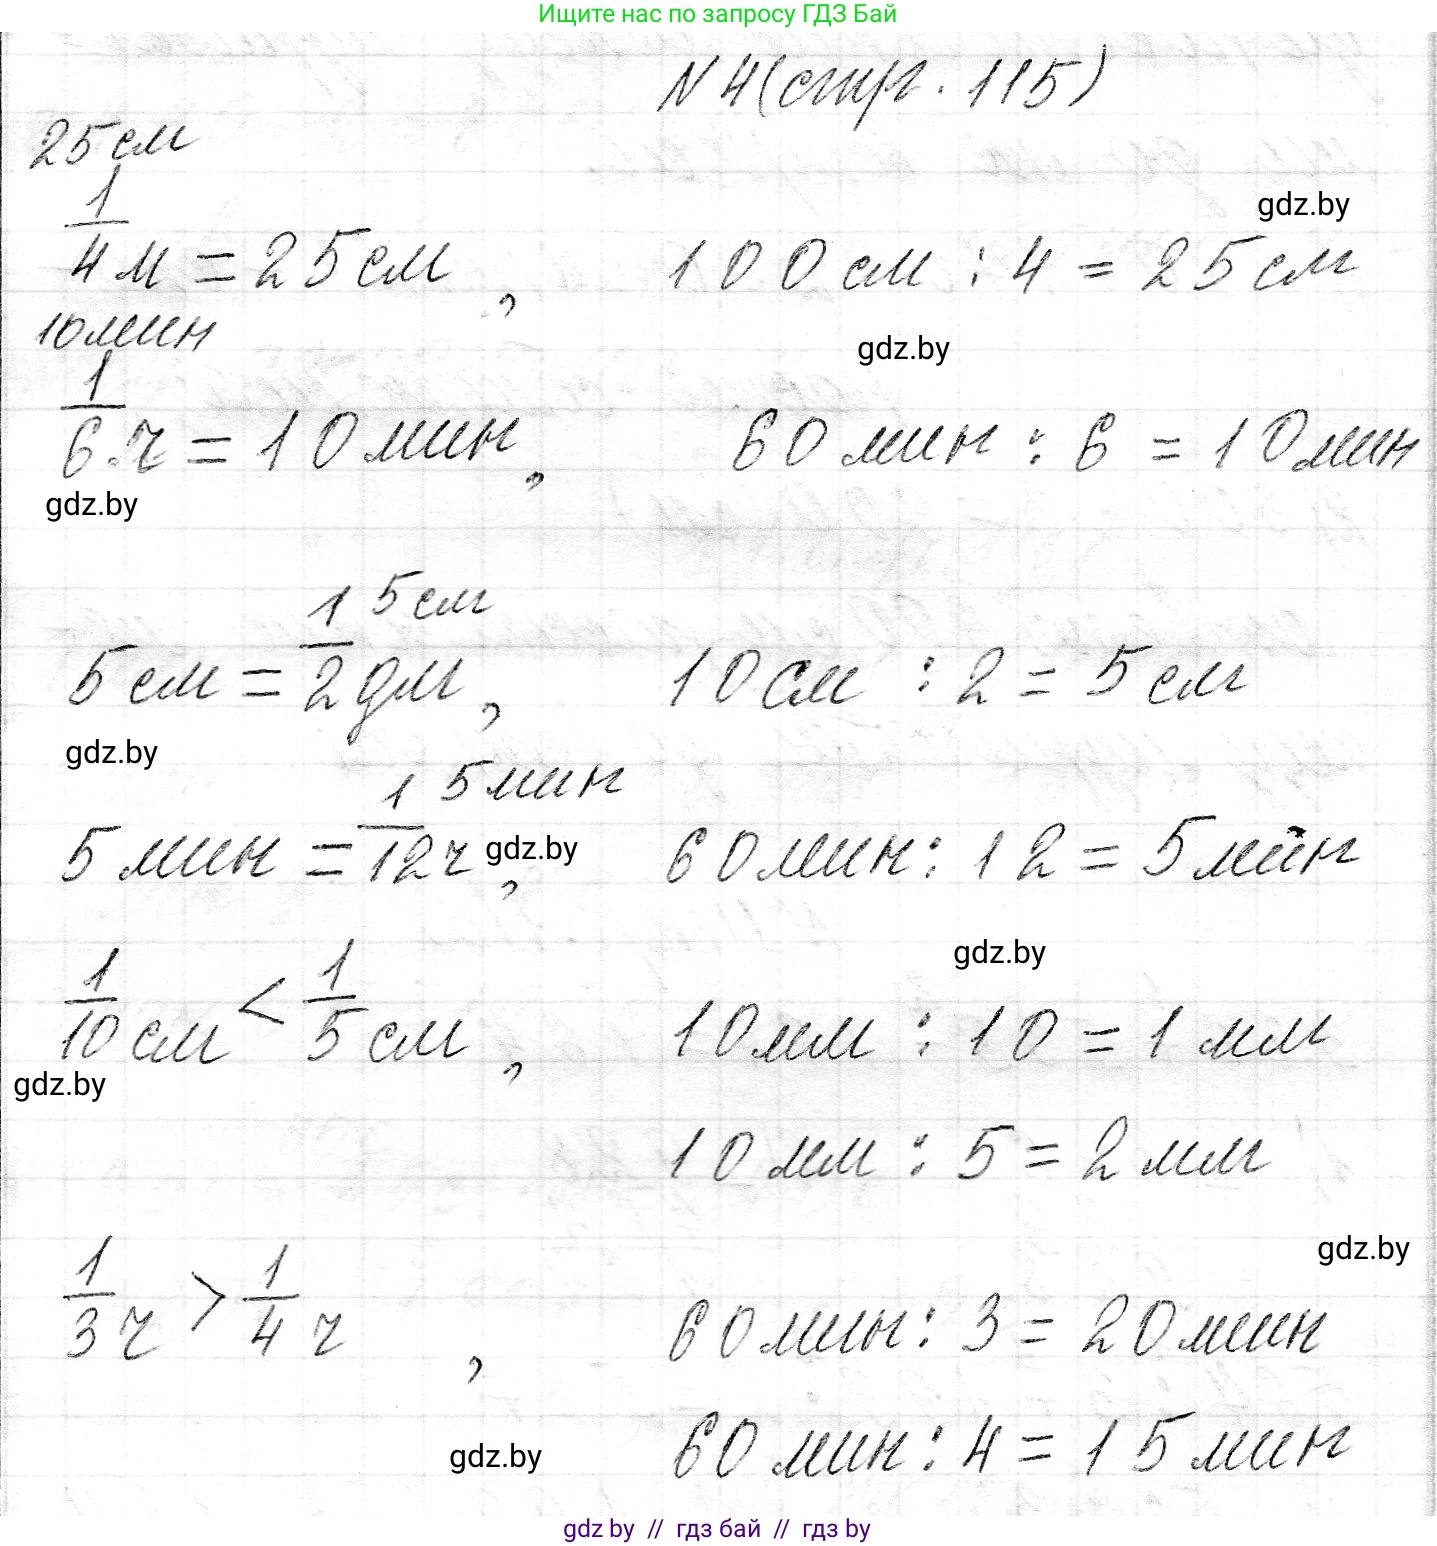 Ищите нас по запросу ГДЗ Бай
N4(стр. 115)
25см
1/4 м = 25см, 100см : 4 = 25см
gdz.by
10мин
gdz.by
1/6 ч = 10мин, 60мин : 6 = 10мин
gdz.by
5см
5см = 1/2 дм, 10см : 2 = 5см
gdz.by
5мин
5мин = 1/12 ч, 60мин : 12 = 5мин
gdz.by
gdz.by
1/10 см < 1/5 см, 10мм : 10 = 1мм
gdz.by
10мм : 5 = 2мм
gdz.by
1/3 ч > 1/4 ч, 60мин : 3 = 20мин
60мин : 4 = 15мин
gdz.by
gdz by // гдз бай // гдз by